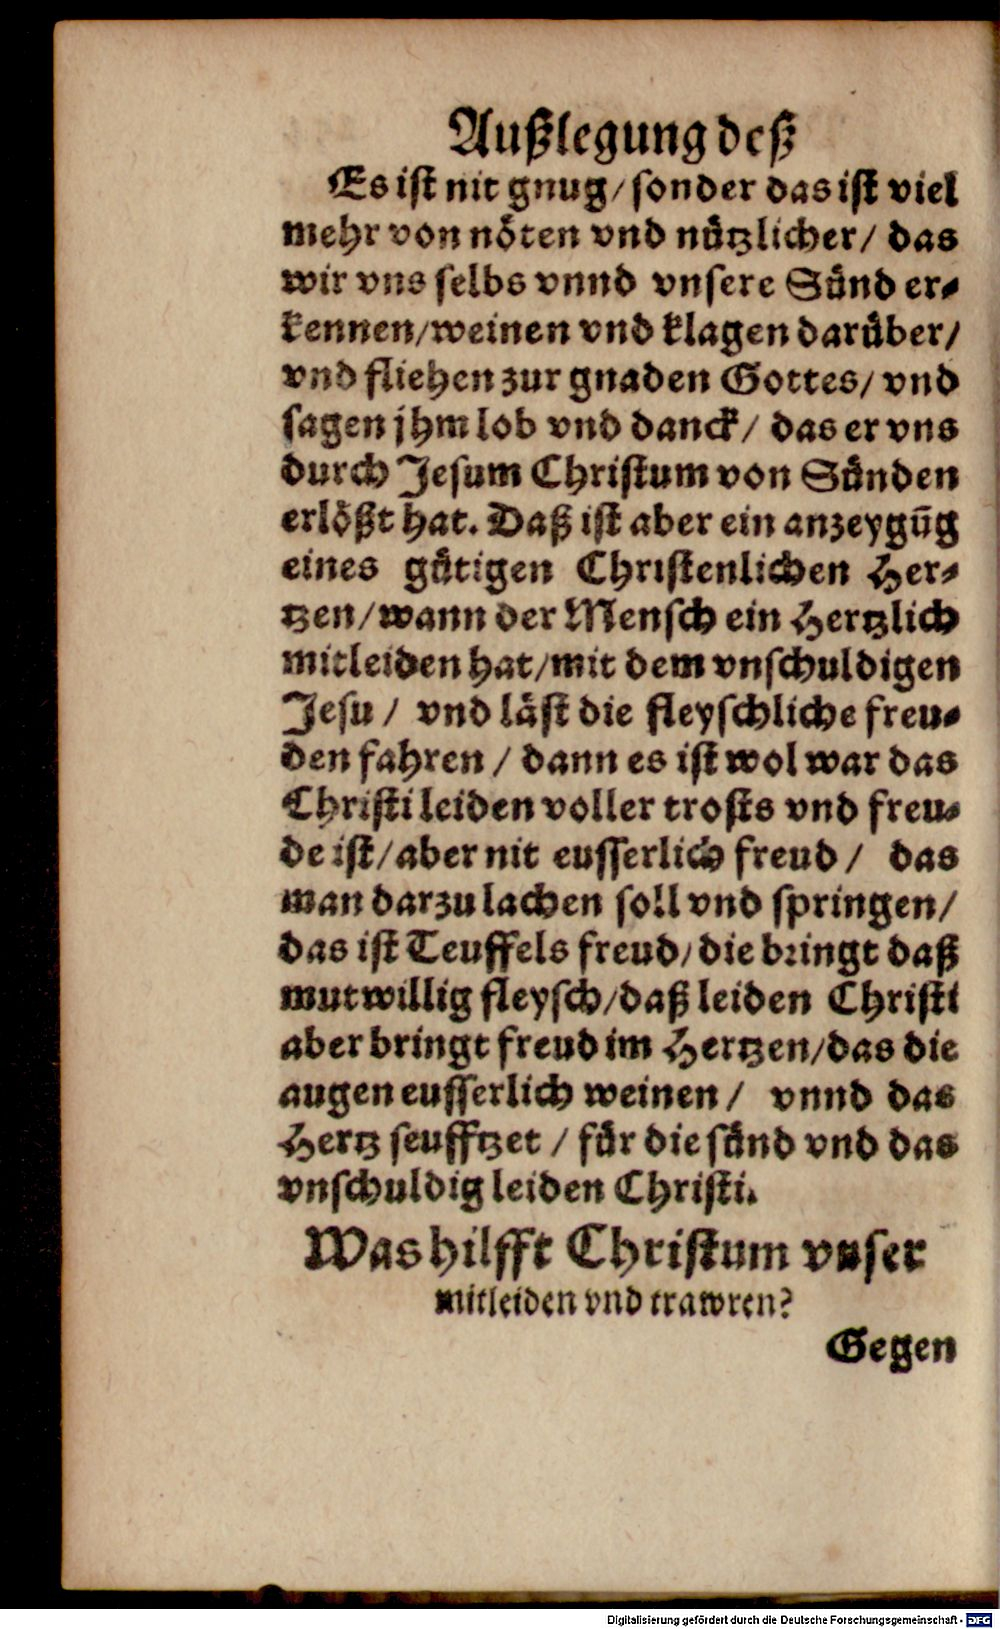 Außlegung deß
Es ist nit gnug/ sonder das ist viel
mehr von noͤten vnd nuͤtzlicher/ das
wir vns selbs vnnd vnsere Suͤnd er⸗
kennen/weinen vnd klagen daruͤber/
vnd fliehen zur gnaden Gottes/ vnd
sagen jhm lob vnd danck/ das er vns
durch Jesum Christum von Suͤnden
erloͤßt hat. Daß ist aber ein anzeygūg
eines guͤtigen Christenlichen Her⸗
tzen/wann der Mensch ein Hertzlich
mitleiden hat/mit dem vnschuldigen
Jesu / vnd laͤst die fleyschliche freu⸗
den fahren / dann es ist wol war das
Christi leiden voller trosts vnd freu⸗
de ist/aber nit eusserlich freud / das
man darzu lachen soll vnd springen/
das ist Teuffels freud/die bringt daß
mutwillig fleysch/daß leiden Christi
aber bringt freud im Hertzen/das die
augen eusserlich weinen / vnnd das
Hertz seufftzet / fuͤr die suͤnd vnd das
vnschuldig leiden Christi.
Was hilfft Christum vnser
mitleiden vnd trawren?
Gegen
Digitalisierung gefördert durch die Deutsche Forschungsgemeinschaft - DFG